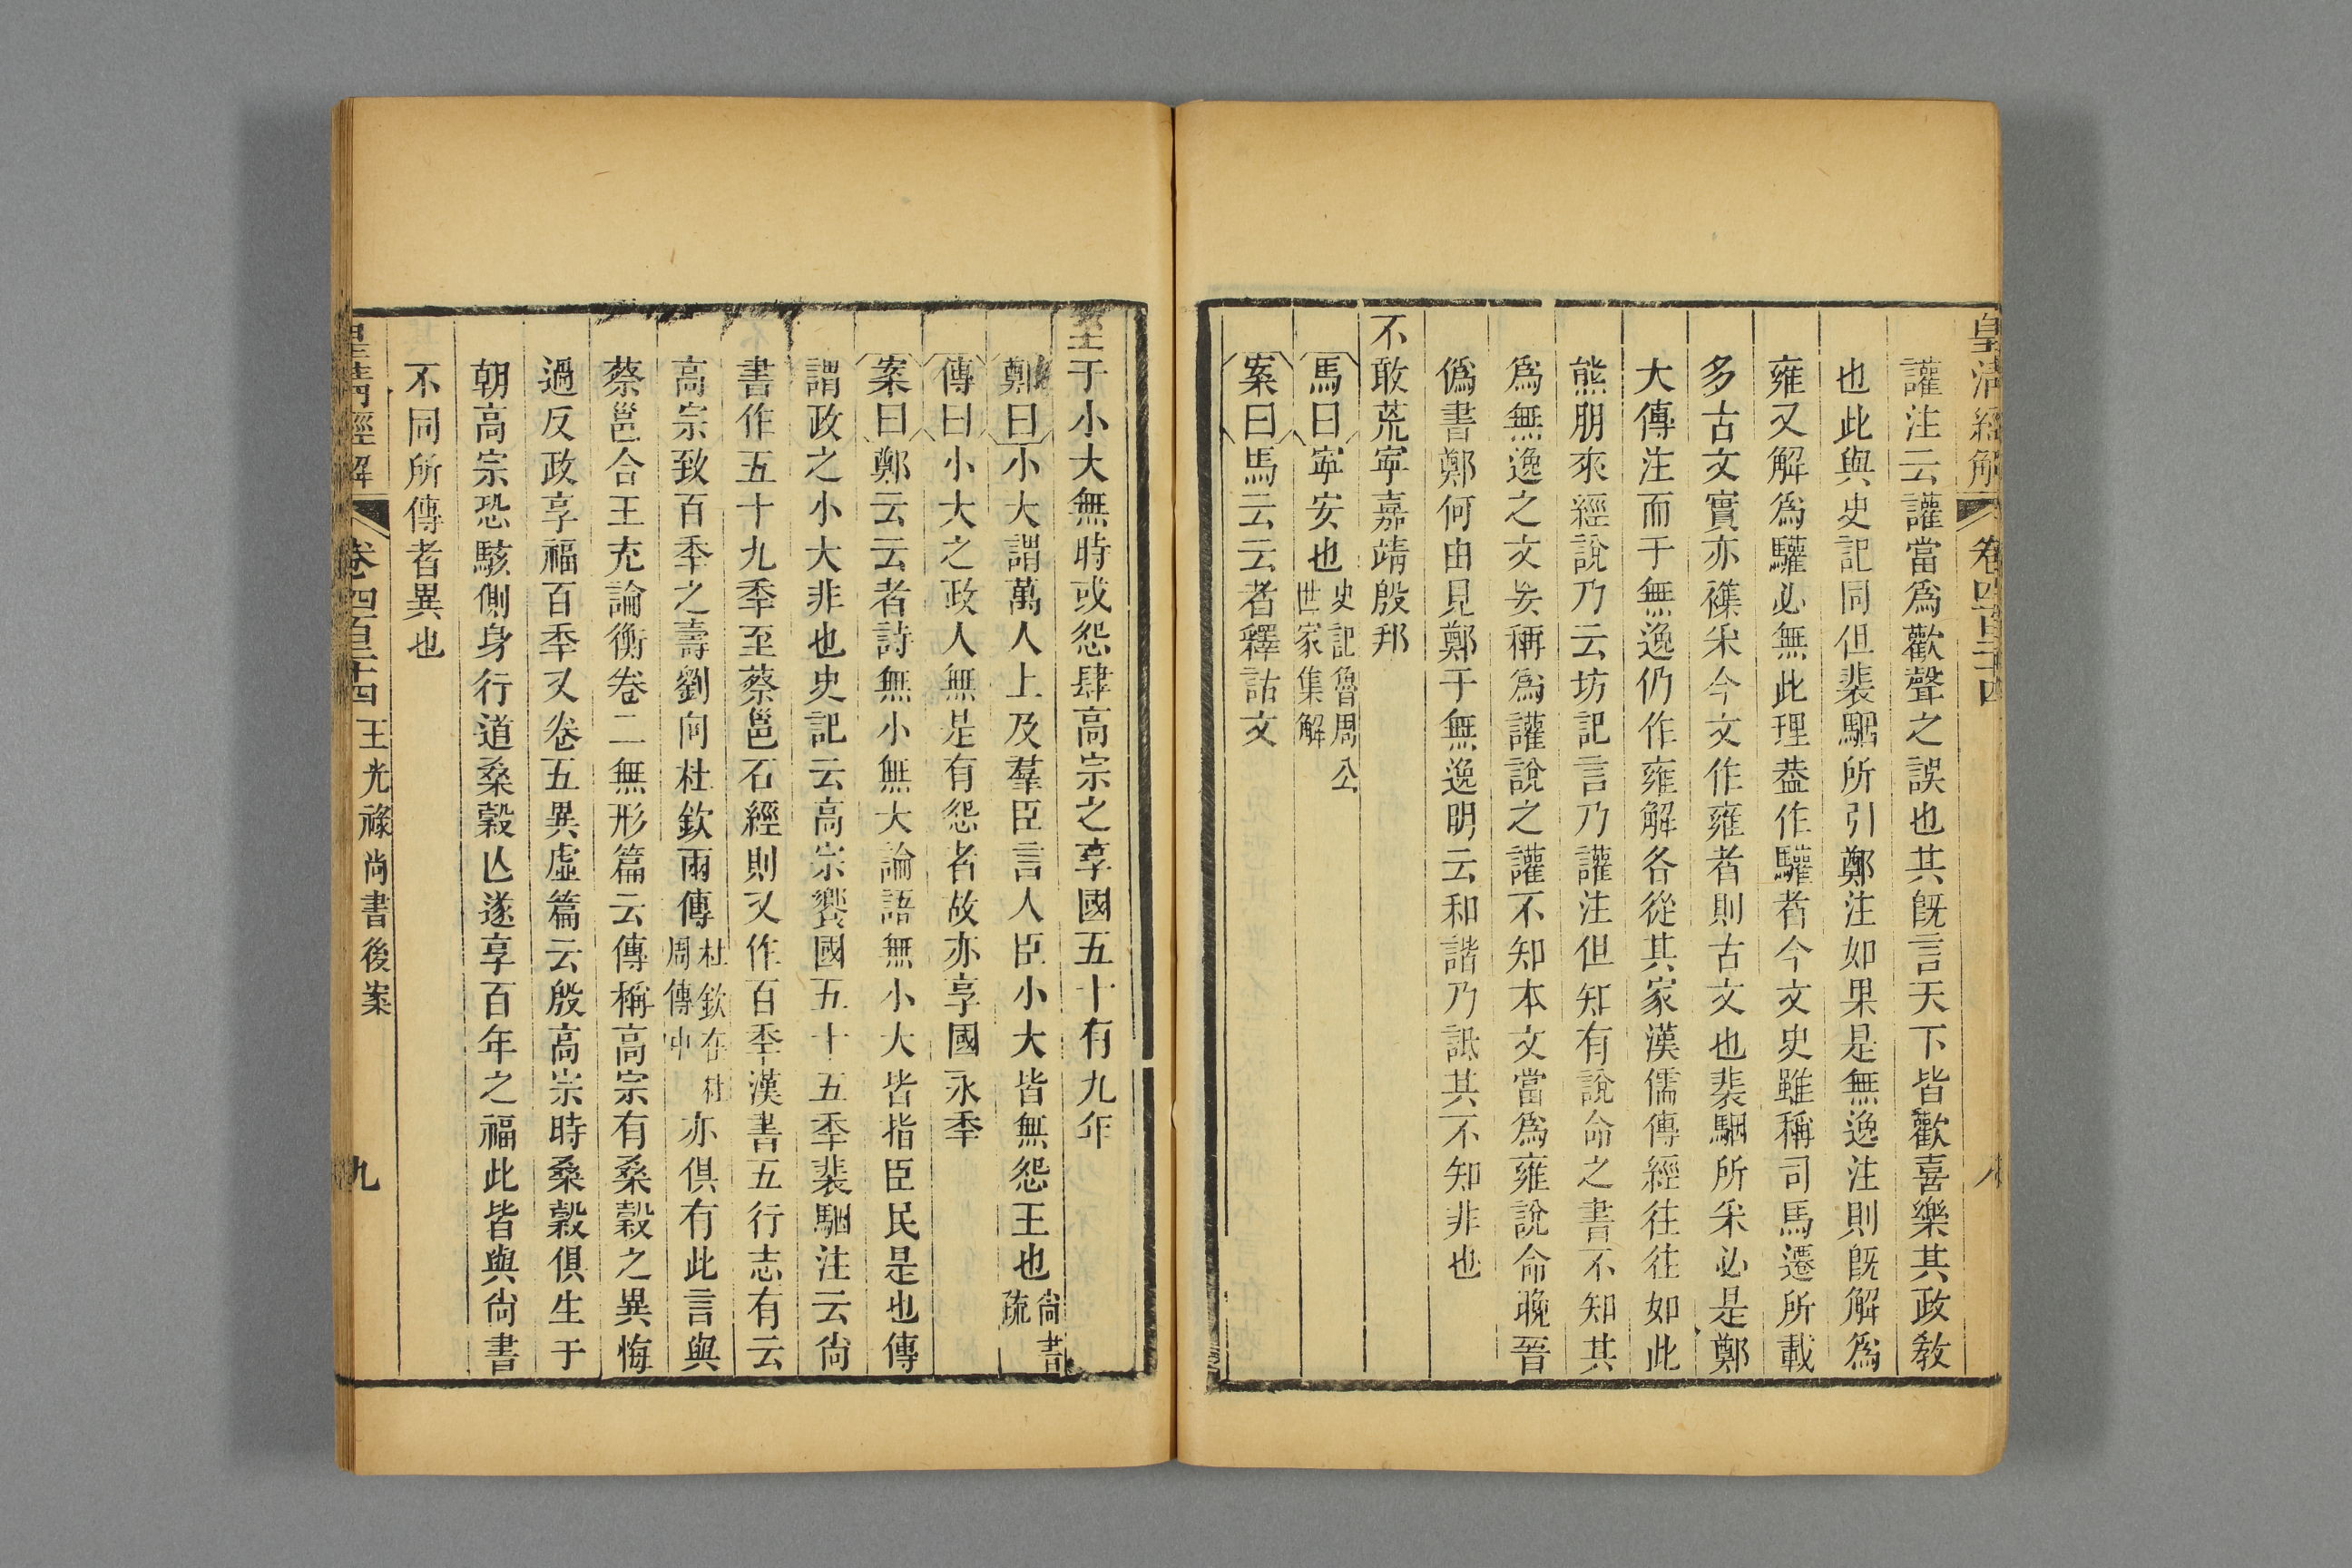 皇清經解 卷四百二十四 八
讙注云讙當爲歡聲之誤也其旣言天下皆歡喜樂其政教
也此與史記同但裴駰所引鄭注如果是無逸注則旣解爲
雍又解爲驩必無此理葢作驩者今文史雖稱司馬遷所載
多古文實亦襍采今文作雍者則古文也裴駰所采必是鄭
大傳注而于無逸仍作雍解各從其家漢儒傳經往往如此
熊朋來經說乃云坊記言乃讙注但知有說命之書不知其
爲無逸之文矣稱爲讙說之讙不知本文當爲雍說命晚晉
僞書鄭何由見鄭于無逸明云和諧乃詆其不知非也
不敢荒寧嘉靖殷邦
馬曰寧安也史記魯周公世家集解
案曰馬云云者釋詁文
至于小大無時或怨肆高宗之享國五十有九年
鄭曰小大謂萬人上及羣臣言人臣小大皆無怨王也尙書疏
傳曰小大之政人無是有怨者故亦享國永秊
案曰鄭云云者詩無小無大論語無小大皆指臣民是也傳
謂政之小大非也史記云高宗饗國五十五秊裴駰注云尙
書作五十九秊至蔡邕石經則又作百秊漢書五行志有云
高宗致百秊之壽劉向杜欽兩傳杜欽在杜周傳中亦俱有此言與
蔡邕合王充論衡卷二無形篇云傳稱高宗有桑穀之異悔
過反政享福百秊又卷五異虛篇云殷高宗時桑穀俱生于
朝高宗恐駭側身行道桑穀亾遂享百年之福此皆與尙書
不同所傳者異也
皇清經解 卷四百二十四 王光祿尙書後案 九